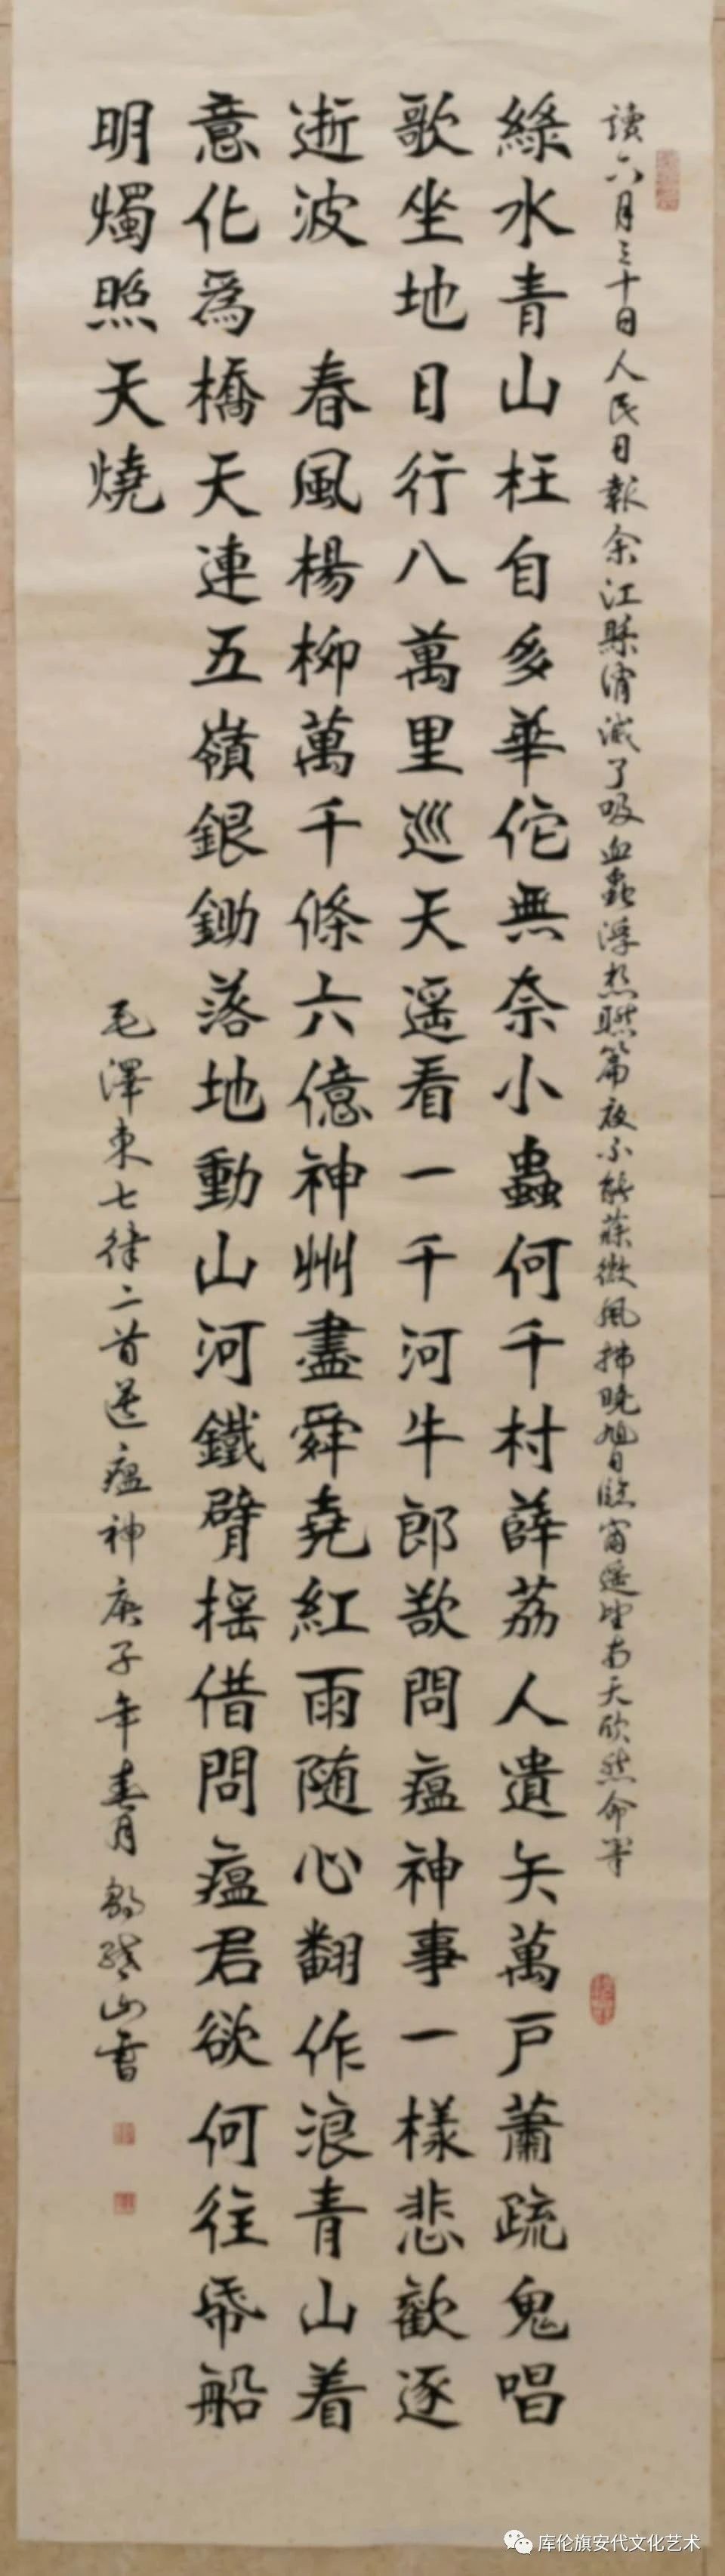 讀六月三十日人民日報余江縣消滅了吸血蟲浮想聯篇夜不能寐微風拂曉旭日臨窗遥望南天欣然命筆
綠水青山枉自多華佗無奈小蟲何千村薜荔人遺矢萬戶蕭疏鬼唱
歌坐地日行八萬里巡天遥看一千河牛郎欲問瘟神事一樣悲歡逐
逝波 春風楊柳萬千條六億神州盡舜堯紅雨随心翻作浪青山着
意化爲橋天連五嶺銀鋤落地動山河鐵臂摇借問瘟君欲何往帋船
明燭照天燒
毛澤東七律二首送瘟神庚子年春月 山書
库伦旗安代文化艺术